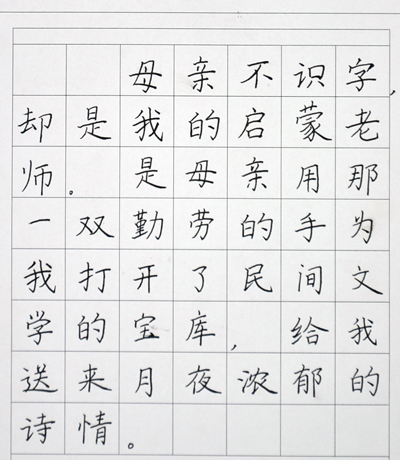 母亲不识字，
却是我的启蒙老
师。是母亲用那
一双勤劳的手为
我打开了民间文
学的宝库，给我
送来月夜浓郁的
诗情。